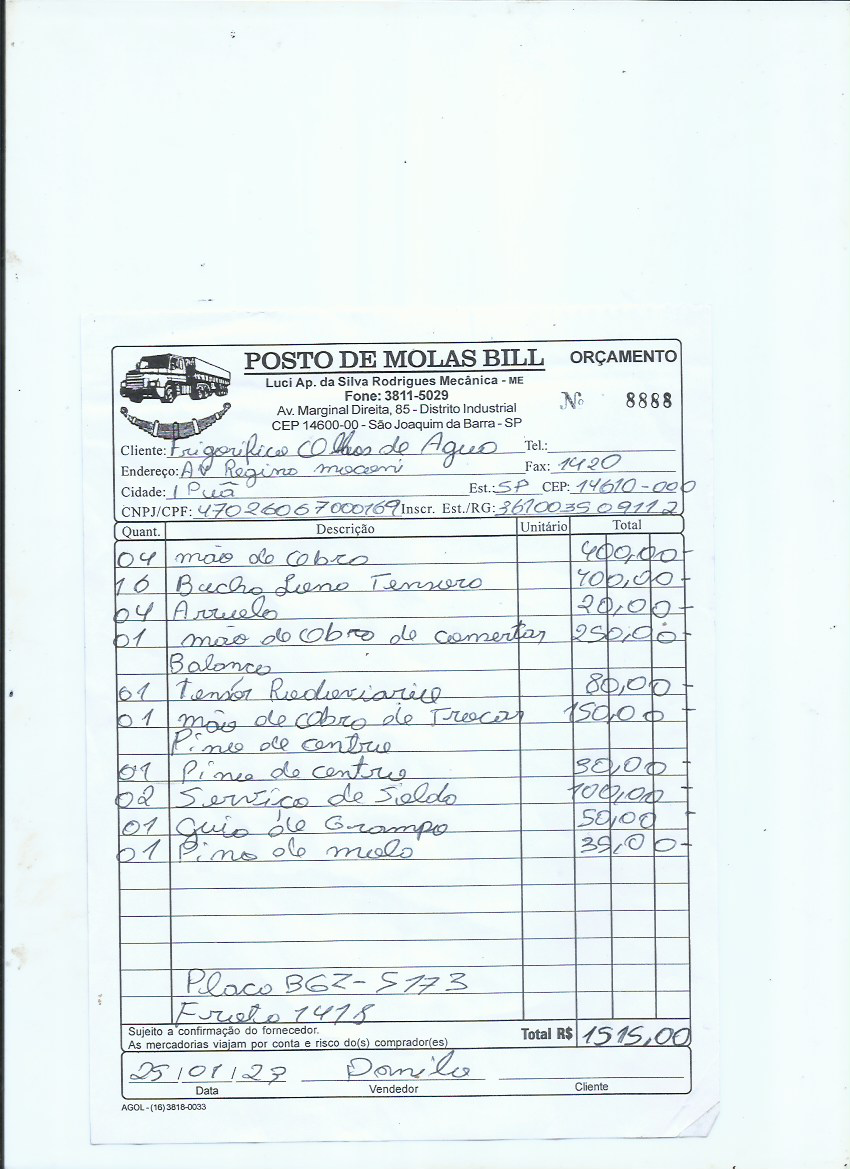 POSTO DE MOLAS BILL ORÇAMENTO
Luci Ap. da Silva Rodrigues Mecânica - ME
Fone: 3811-5029
Nº 8888
Av. Marginal Direita, 85 - Distrito Industrial
CEP 14600-00 - São Joaquim da Barra - SP
Cliente: Frigorifico Olhos de Agua Tel.:
Endereço: Av Regino moceni Fax: 1420
Cidade: I Puã Est.: SP CEP: 14610-000
CNPJ/CPF: 47026067000169 Inscr. Est./RG:
Quant. Descrição Unitário Total
04 mão de Obra 400,00
16 Bucha Tensora 400,00
04 Arruela 20,00
01 mão de Obra de consertar 250,00
Balanca
01 Tensor Rodoviario 80,00
01 mão de Obra de Trocar 150,00
Pino de centro
01 Pino de centro 30,00
02 Serviço de Solda 100,00
01 Guia de Grampo 50,00
01 Pino de mola 35,00
Placa BGZ-5173
Frota 1418
Sujeito a confirmação do fornecedor.
As mercadorias viajam por conta e risco do(s) comprador(es) Total R$ 1515,00
25/01/23 Danilo
Data Vendedor Cliente
AGOL - (16) 3818-0033